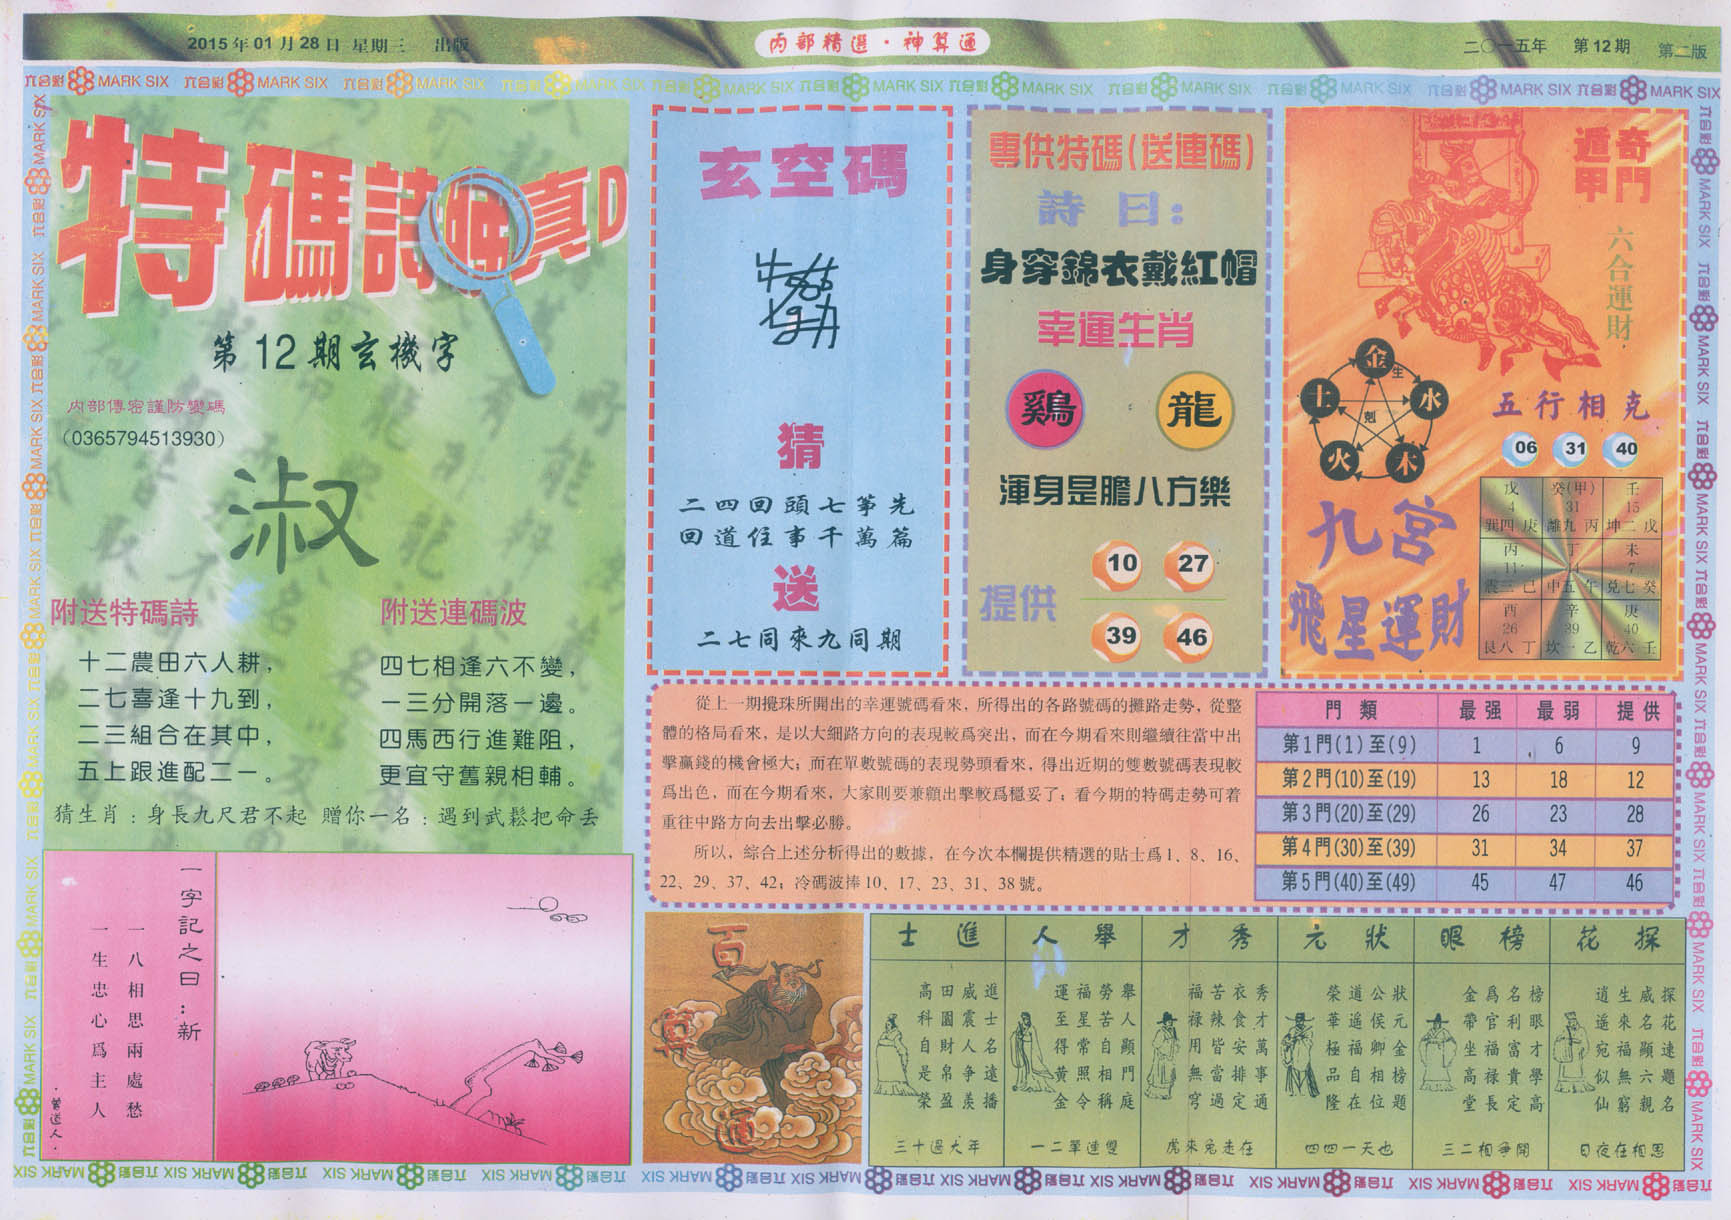 2015年01月28日 星期三 出版
内部精選·神算通
二〇一五年 第12期 第二版
六合彩 MARK SIX
特碼詩 真D
第12期玄機字
内部傳密謹防變碼
(0365794513930)
淑
附送特碼詩
十二農田六人耕，
二七喜逢十九到，
二三組合在其中，
五上跟進配二一。
附送連碼波
四七相逢六不變，
一三分開落一邊。
四馬西行進難阻，
更宜守舊親相輔。
猜生肖：身長九尺君不起 贈你一名：遇到武鬆把命丢
一字記之曰：新
一八相思兩處愁
一生忠心爲主人
·曾道人·
玄空碼
猜
二四回頭七筝先
回道任事千萬篇
送
二七同來九同期
專供特碼(送連碼)
詩曰：
身穿錦衣戴紅帽
幸運生肖
鷄 龍
渾身是膽八方樂
提供
10 27
39 46
奇門遁甲
六合運財
金 水 木 火 土
生
剋
五行相克
06 31 40
九宮
飛星運財
戊 癸(甲) 壬
4 31 15
巽四 庚 離九 丙 坤二 戊
丙 丁 未
11 14 7
震三 己 中五 午 兑七 癸
酉 辛 庚
26 39 40
艮八 丁 坎一 乙 乾六 壬
從上一期攪珠所開出的幸運號碼看來，所得出的各路號碼的攤路走勢，從整
體的格局看來，是以大細路方向的表現較爲突出，而在今期看來則繼續往當中出
擊贏錢的機會極大；而在單數號碼的表現勢頭看來，得出近期的雙數號碼表現較
爲出色，而在今期看來，大家則要兼顧出擊較爲穩妥了；看今期的特碼走勢可着
重往中路方向去出擊必勝。
所以，綜合上述分析得出的數據，在今次本欄提供精選的貼士爲1、8、16、
22、29、37、42；冷碼波捧10、17、23、31、38號。
門類 最强 最弱 提供
第1門(1)至(9) 1 6 9
第2門(10)至(19) 13 18 12
第3門(20)至(29) 26 23 28
第4門(30)至(39) 31 34 37
第5門(40)至(49) 45 47 46
百
進士
進士名遠播
威震人争羡
田園財帛盈
高科自是榮
三十過大年
舉人
舉人顯門庭
勞苦自相稱
福星常照令
運至得黄金
一二單連雙
秀才
秀才萬事通
衣食安排定
苦辣皆當過
福禄用無穹
虎來兔走在
狀元
狀元金榜題
公侯卿相位
道遥福自在
榮華極品隆
四四一天也
榜眼
榜眼才學高
名利富貴定
爲官福禄長
金帶坐高堂
三二相争開
探花
探花速題名
威名顯六親
生來福無窮
逍遥宛似仙
日夜在相思